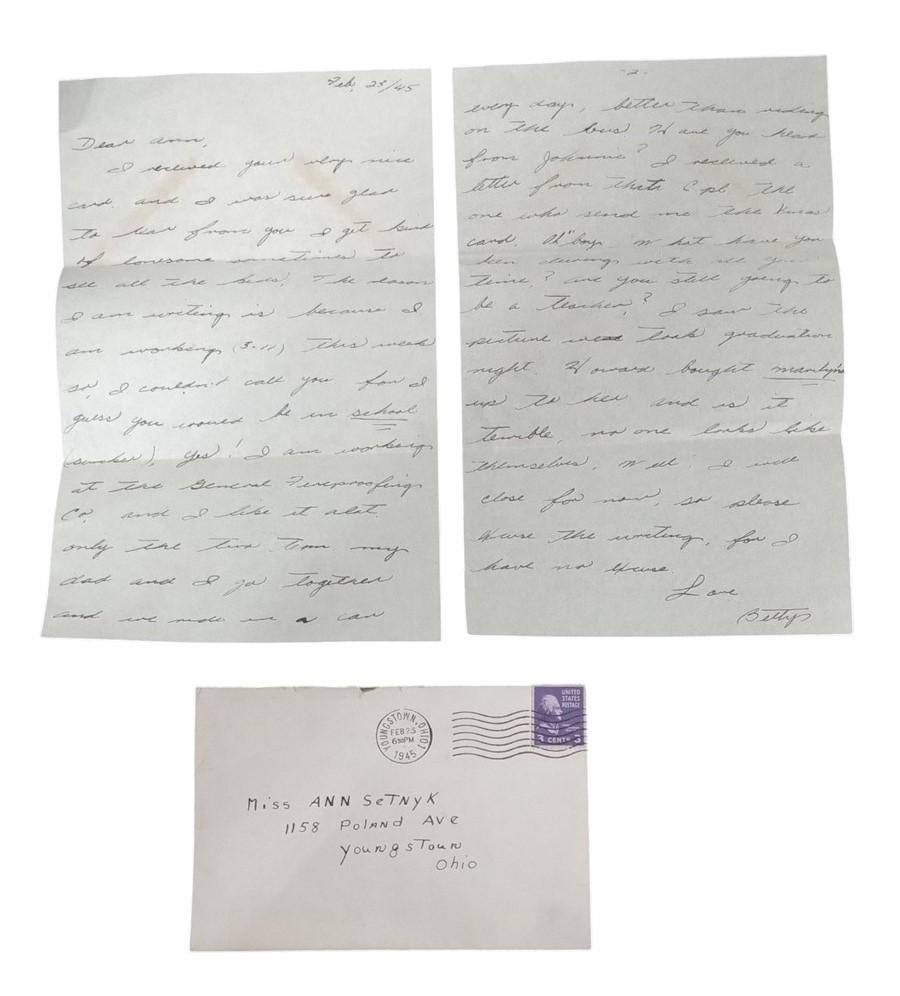 Feb, 23/45
Dear Ann,
I recieved your very nice
card. and I was sure glad
to hear from you I get kind
of lonesome sometimes to
see all the kids. The reason
I am writing is because I
am working (3-11) this week
so, I couldn't call you for I
guess you would be in school
(sucker), Yes! I am working
at the General Fireproofing
Co, and I like it alot.
only the tho
dad and I go together
and we ride in a car
-2-
every day, better than riding
on the bus Have you hear
from Johnnie? I recieved a
letter from that Cpl. the
one who send me the Xmas
card. Oh "boy. What have you
been doing with all your
time? are you still going to
be a teacher? I saw the
picture we took graduation
night. Howard bought Marilyn's
up to her and is it
terrible, no one looks like
themselves. Well, I will
close for now, so please
Xcuse the writing, for I
have no Xcuse.
Love
Betty
YOUNGSTOWN, OHIO 1
FEB 23
6 30 PM
1945
UNITED
STATES
POSTAGE
3 CENTS 3
Miss ANN SeTNyK
1158 PolANd AVe
YoungsToun
Ohio